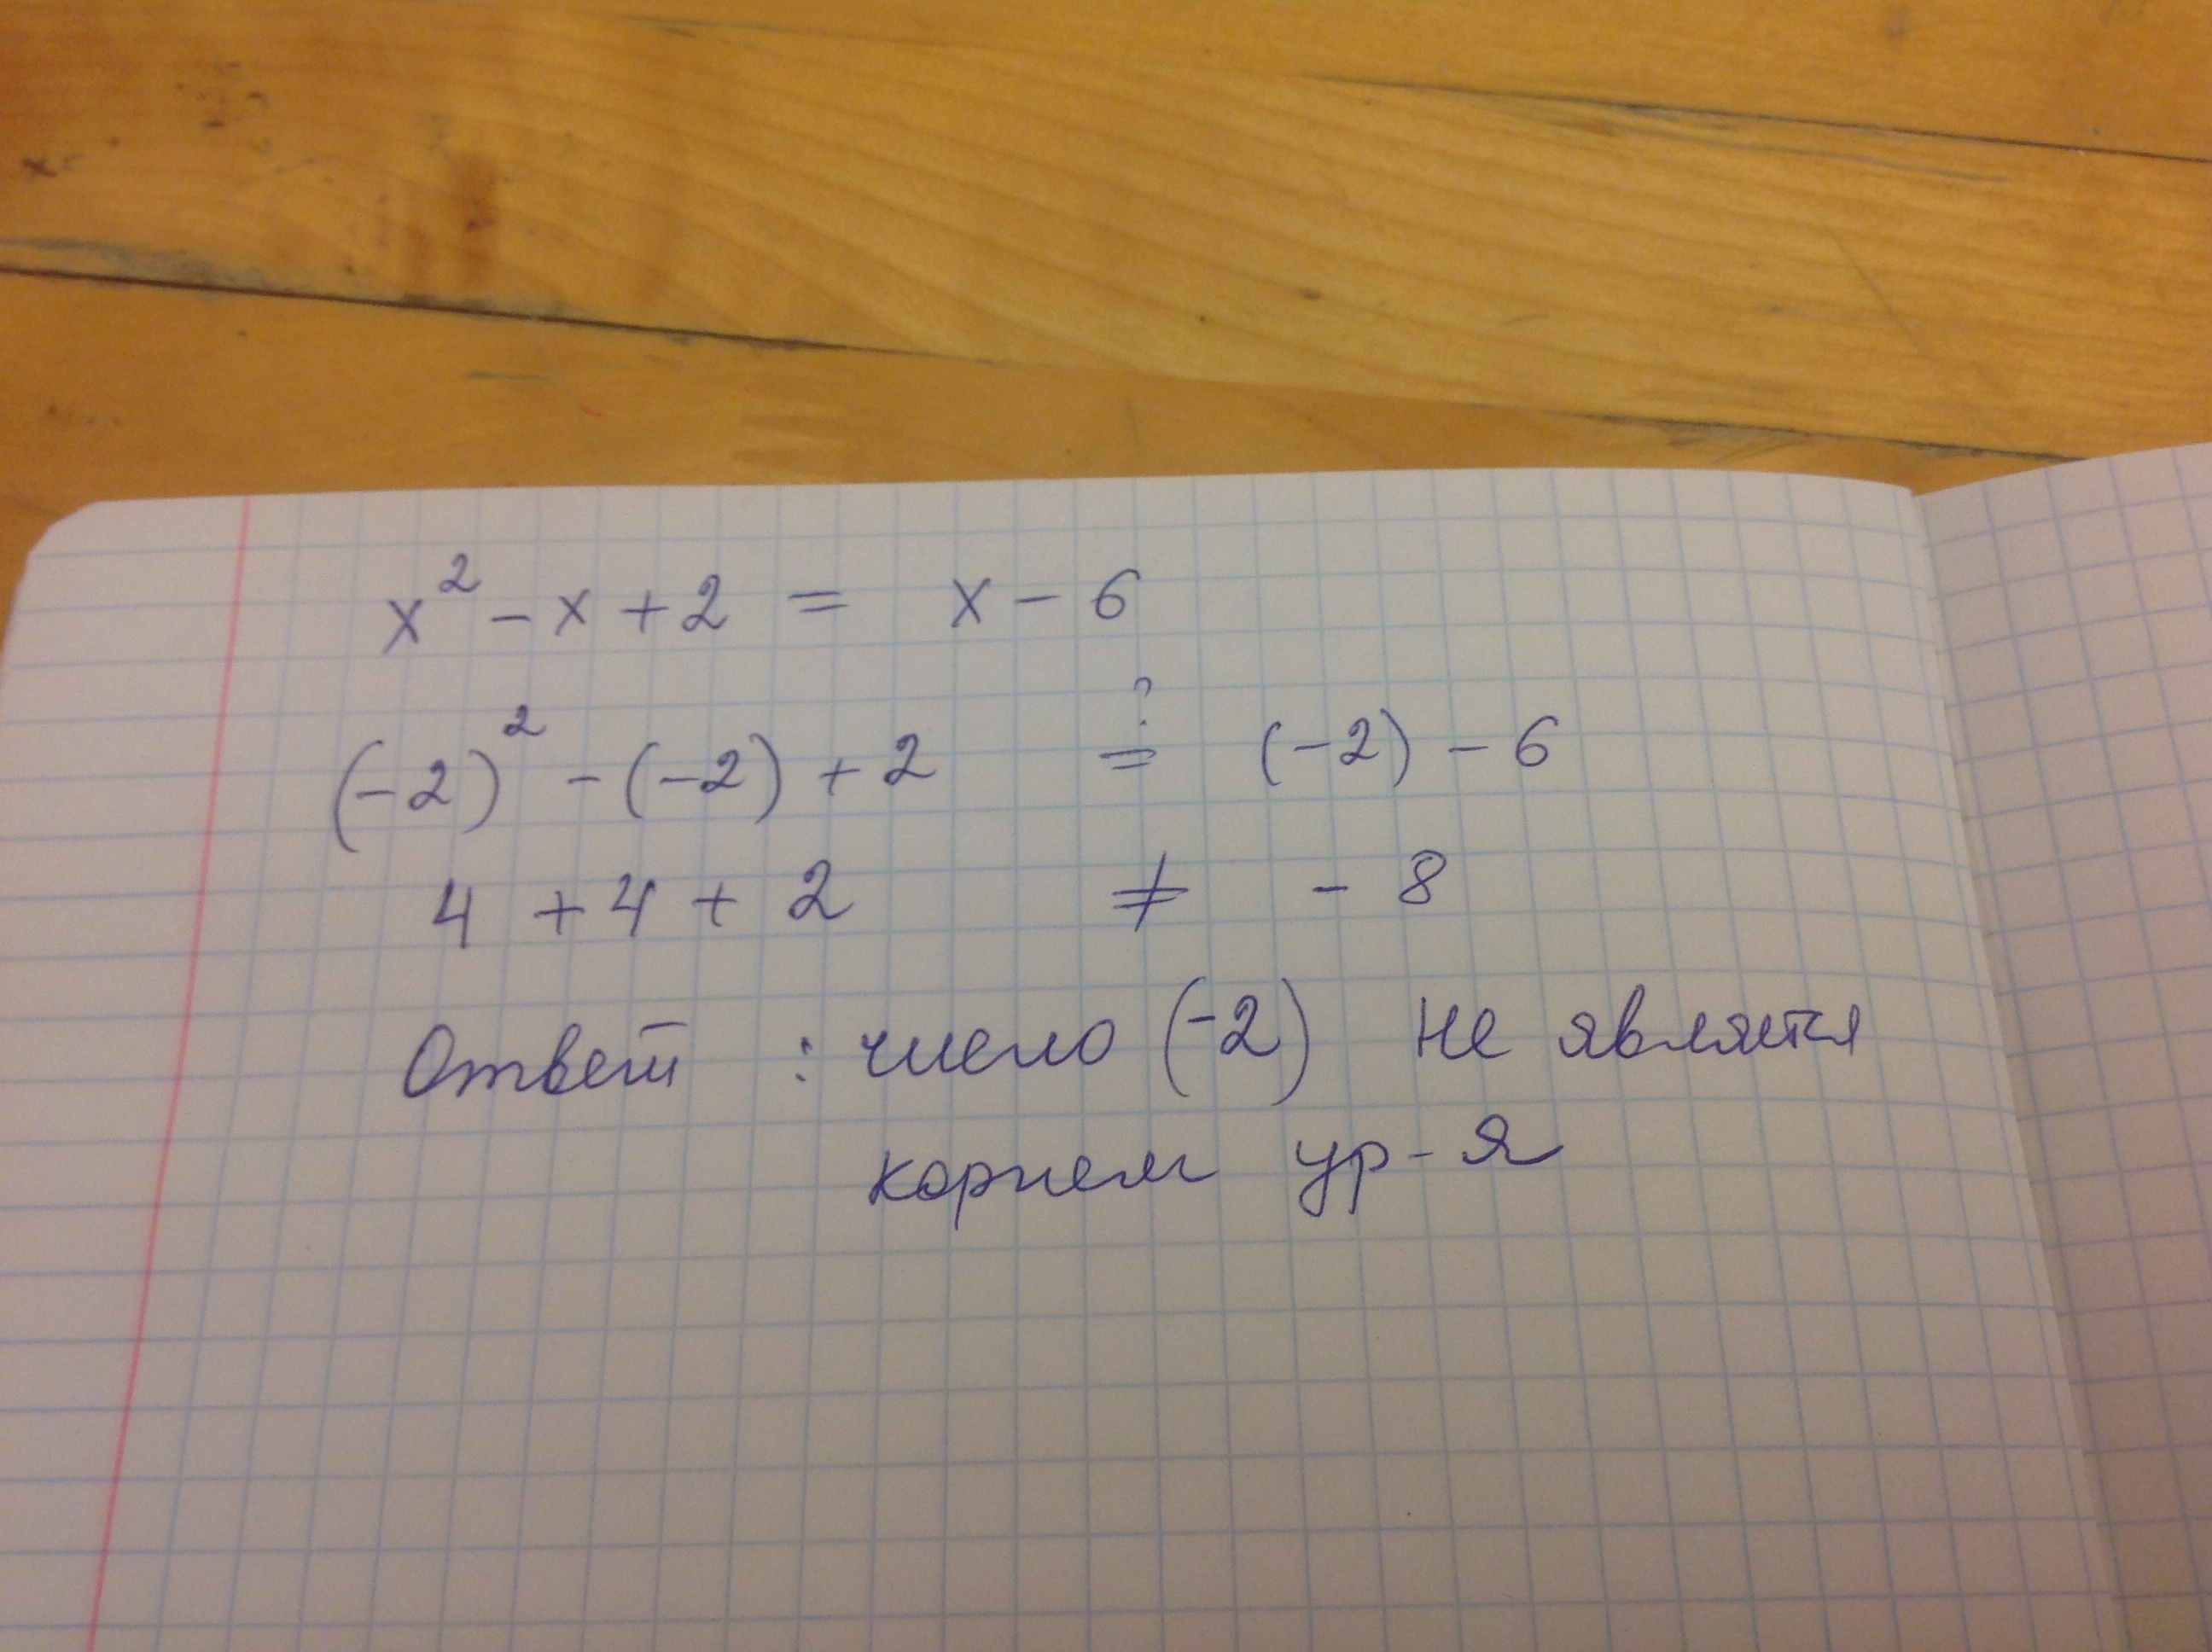 x² - x + 2 = x - 6
(-2)² - (-2) + 2 ≟ (-2) - 6
4 + 4 + 2 ≠ - 8
Ответ : число (-2) не является
корнем ур-я